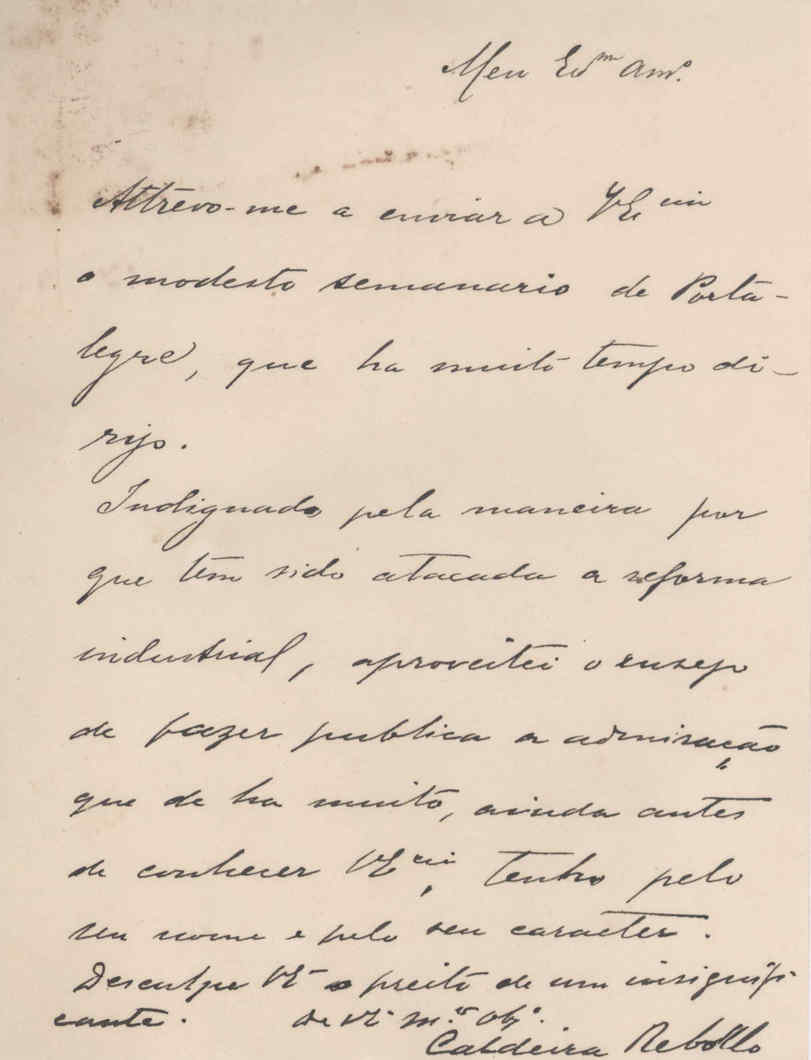 Meu Ex.^mo Am.^o
Attrevo-me a enviar a V Ex^cia
o modesto semanario de Porta-
legre, que ha muito tempo di-
rijo.
Indignado pela maneira por
que tem sido atacada a reforma
industrial, aproveitei o ensejo
de fazer publica a admiração
que de ha muito, ainda antes
de conhecer V Ex^cia, tenho pelo
seu nome e pelo seu caracter.
Desculpe V E o preito de um insignifi-
cante. De V E m.^to ob.^o
Caldeira Rebollo